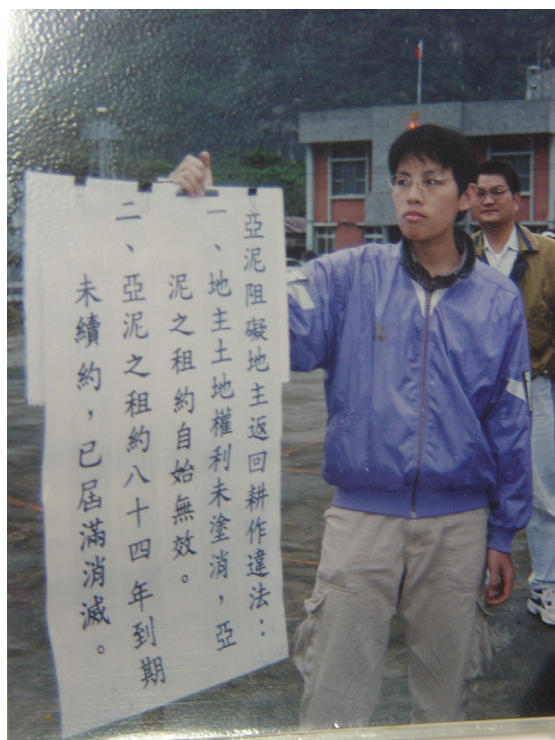 亞泥阻礙地主返回耕作違法：
一、地主土地權利未塗消，亞
泥之租約自始無效。
二、亞泥之租約八十四年到期
未續約，已屆滿消滅。